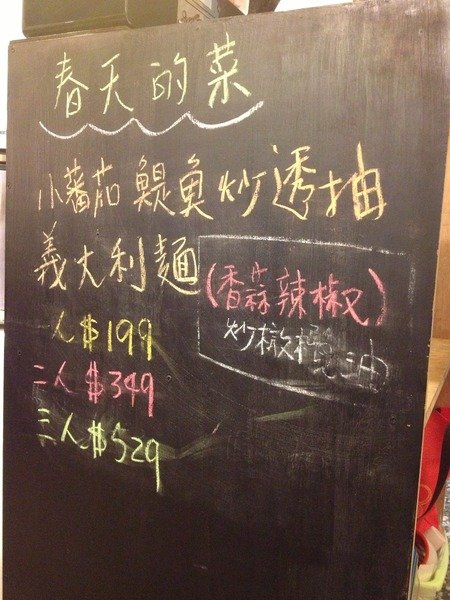 春天的菜
小蕃茄 鯷魚炒透抽
義大利麵
(香蒜辣椒)
炒橄欖油
一人$199
二人$349
三人$529